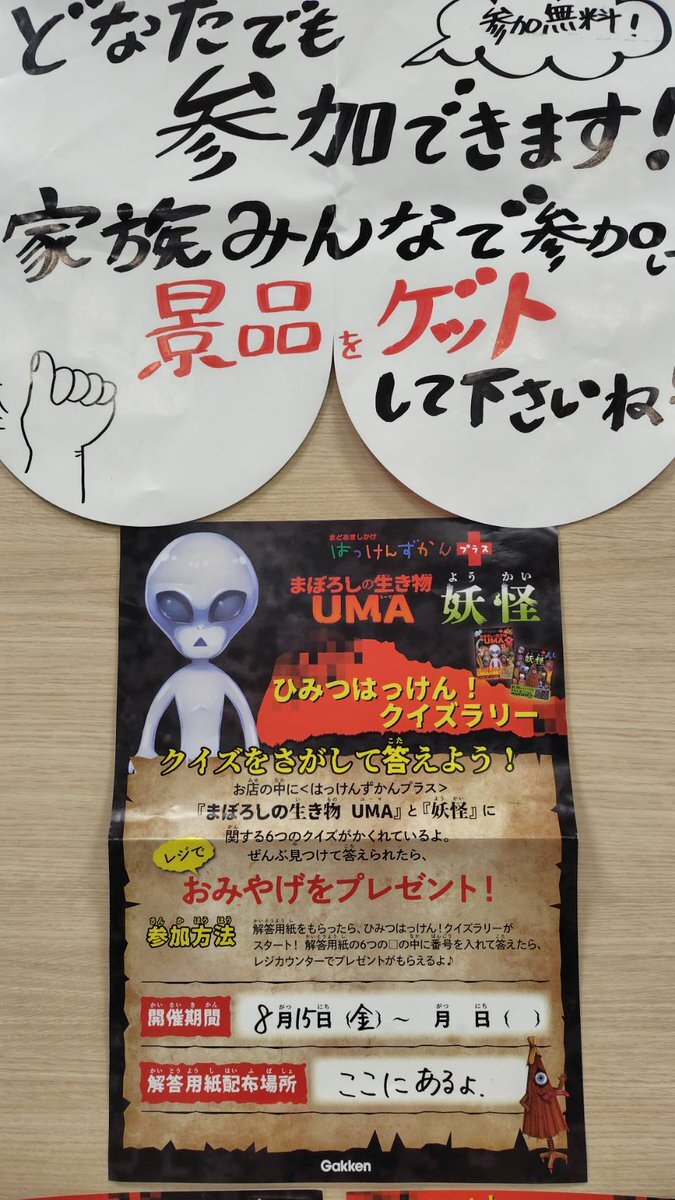 どなたでも
参加無料!
参加できます!
家族みんなで参加し
景品をゲット
して下さいね!
まどあきしかけ
はっけんずかん
プラス
まぼろしの生き物
UMA
ユーマ
妖怪
ようかい
ひみつはっけん!
クイズラリー
クイズをさがして答えよう!
お店の中に<はっけんずかんプラス>
『まぼろしの生き物 UMA』と『妖怪』に
関する6つのクイズがかくれているよ。
ぜんぶ見つけて答えられたら、
レジで
おみやげをプレゼント!
参加方法
解答用紙をもらったら、ひみつはっけん!クイズラリーが
スタート! 解答用紙の6つの□の中に番号を入れて答えたら、
レジカウンターでプレゼントがもらえるよ♪
開催期間
8月15日(金)~ 月 日( )
解答用紙配布場所
ここにあるよ.
Gakken